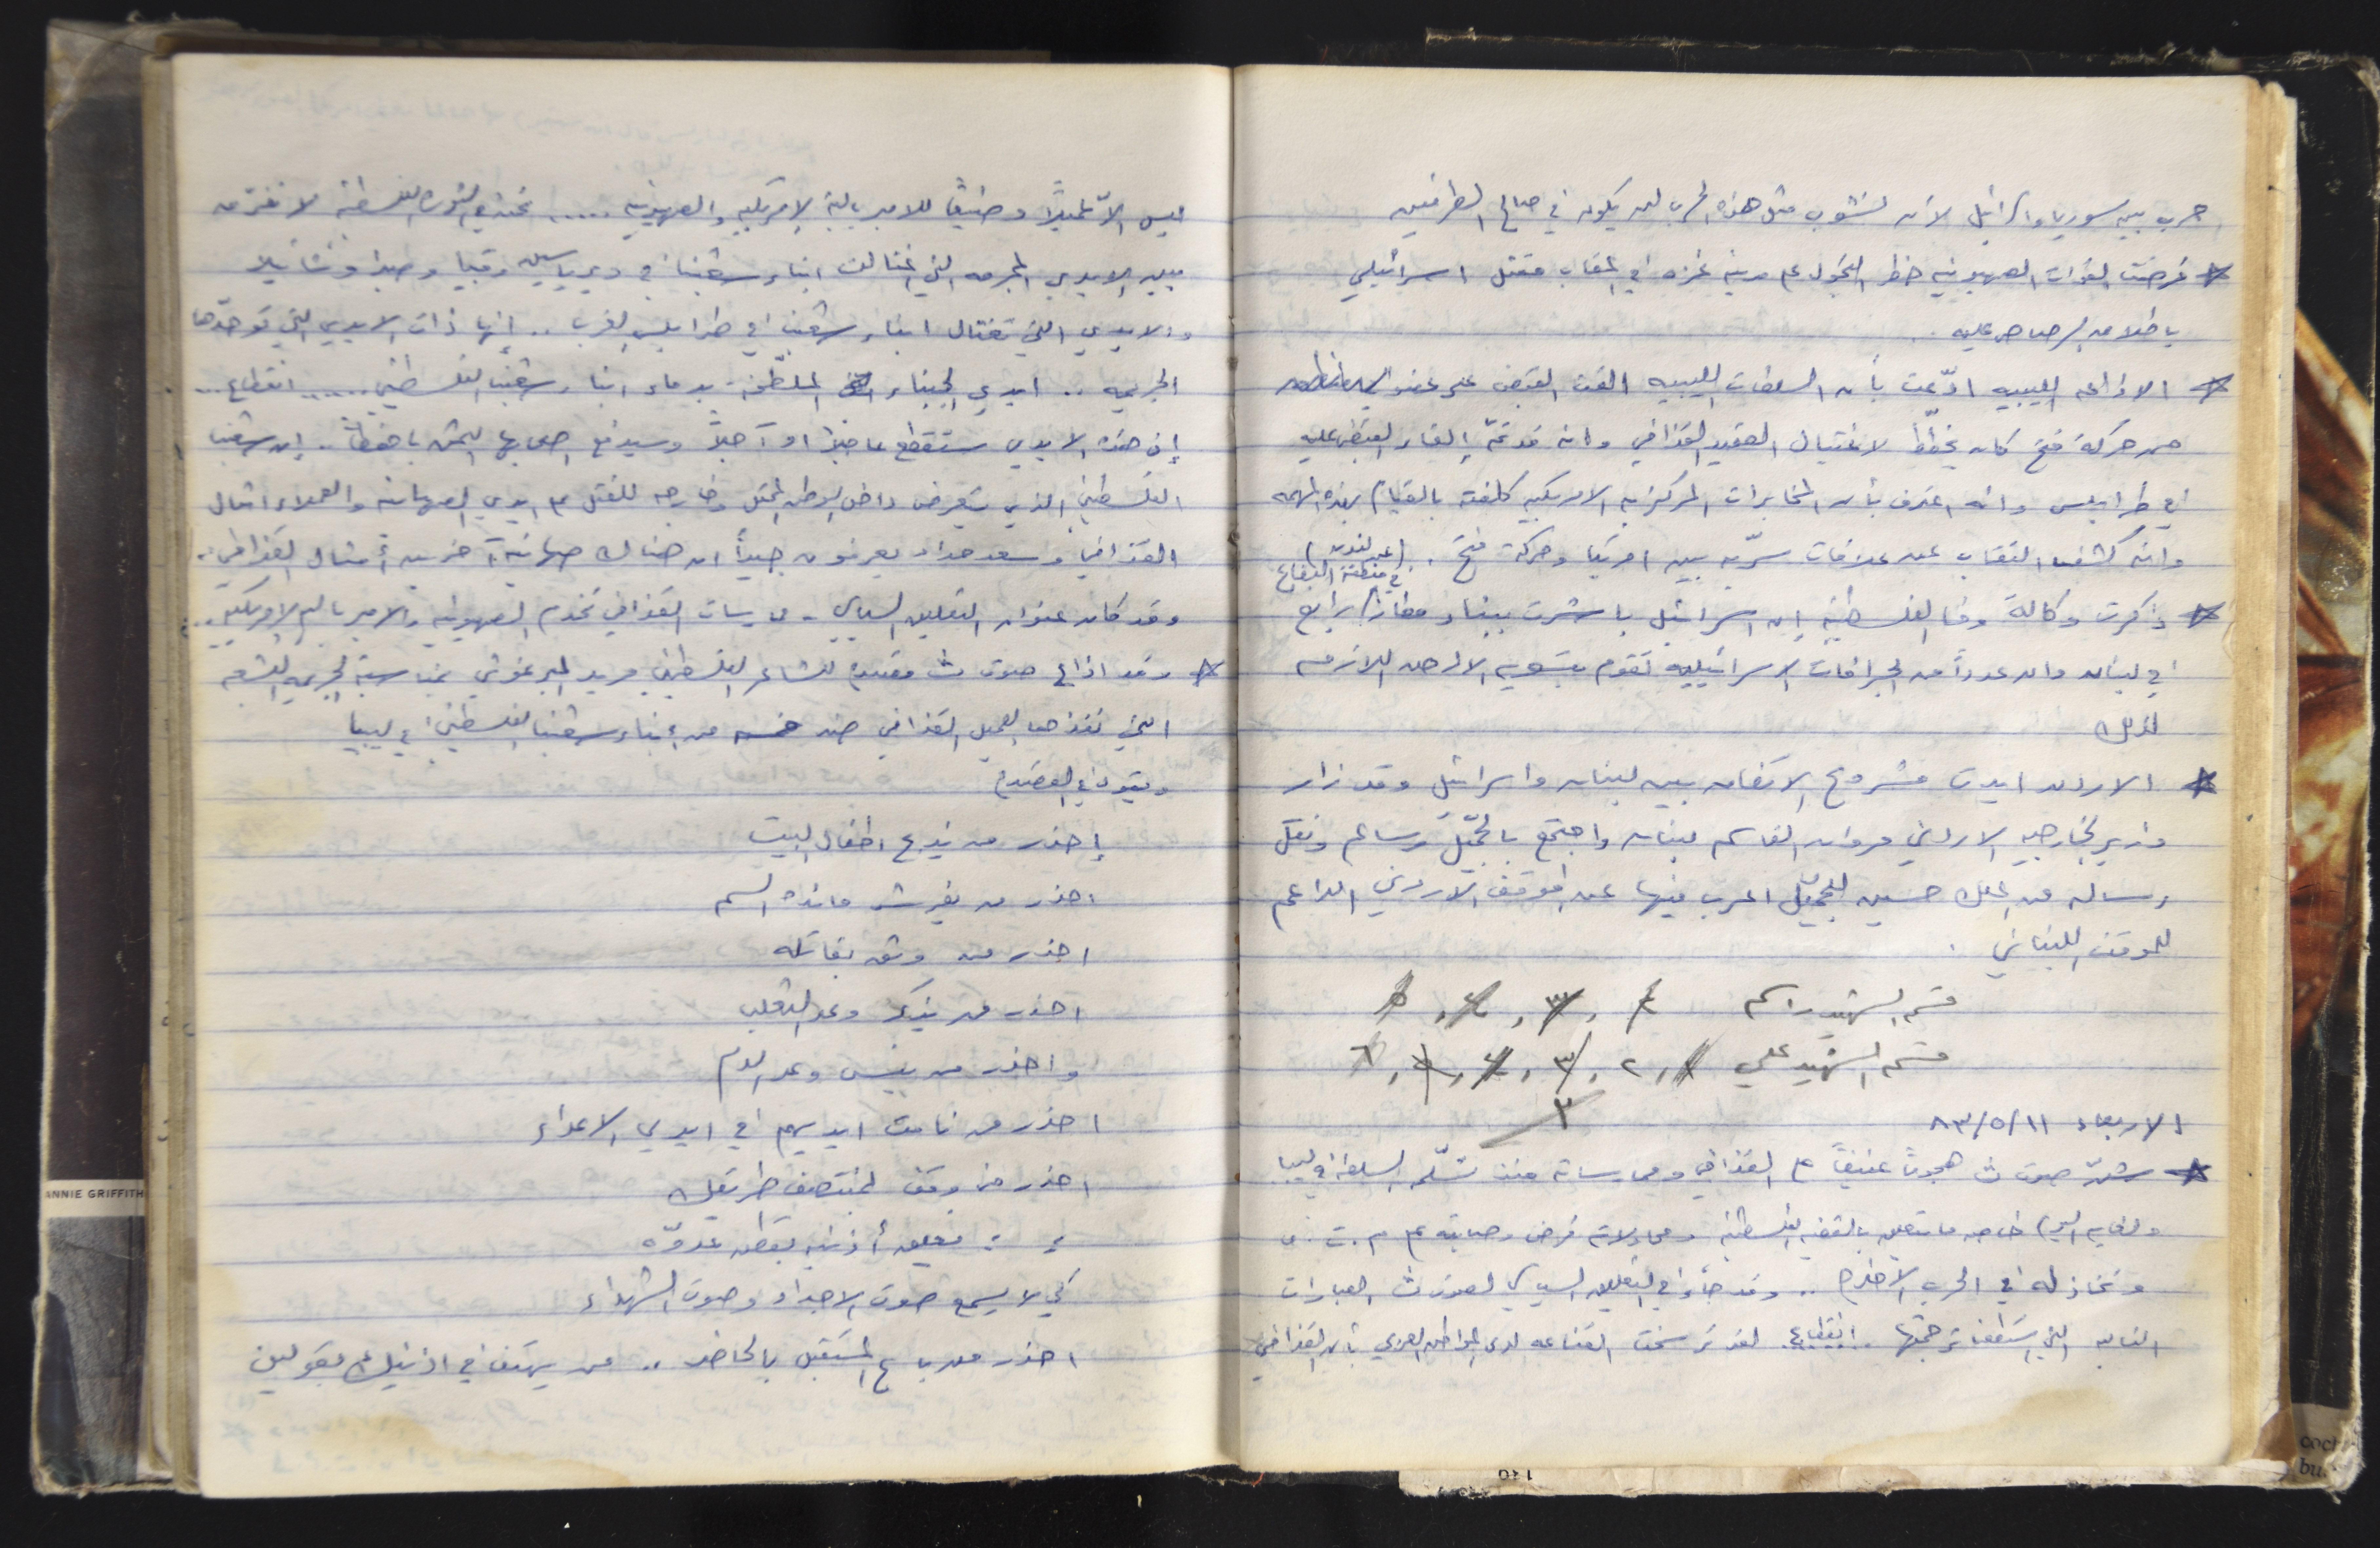 حرب بين سوريا واسرائيل لأن نشوب مثل هذه الحرب لن يكون في صالح الطرفين
* فرضت القوات الصهيونيه حظر التجول على مدينة غزه في اعقاب مقتل اسرائيلي
باطلاق الرصاص عليه .
* الاذاعه الليبيه ادّعت بأن السلطات الليبيه القت القبض على عضو
من حركة فتح كان يخطّط لاغتيال العقيد القذافي وانه قد تمّ إلقاء القبض عليه
في طرابلس وانه اعترف بأن المخابرات المركزيه الامريكيه كلفته بالقيام بهذه المهمه
وانه كشف النقاب عن علاقات سرّيه بين امريكا وحركة فتح ..
(عين لندن)
في منطقة البقاع
* ذكرت وكالة وفا الفلسطينيه إن اسرائيل باشرت ببناء مطار رابع
في لبنان وان عدداً من الجرافات الاسرائيليه تقوم بتسوية الارض اللازمه
لذلك
* الاردن ايدت مشروع الاتفاق بين لبنان واسرائيل وقد زار
وزير الخارجيه الاردني مروان القاسم لبنان واجتمع بالجميّل وسالم ونقل
رساله من الملك حسين للجميّل اعرب فيها عن الموقف الاردني الداعم
للموقف اللبناني .
قسم الشهيد راسم ٢ , ٣ , ٤ , ٥
قسم الشهيد علي ١ , ٢ , ٣ , ٤ , ٥ , ٦
٣
الاربعاء ١١/٥/٨٣
* شنّ صوت ف هجوماً عنيفاً على القذافي وممارساته منذ تسلّم السلطه في ليبيا
ولغاية اليوم خاصه ما يتعلق بالقضيه الفلسطينيه ومحاولاته فرض وصايته على م.ت.ف
وتخاذله في الحرب الاخيره .. وقد جاء في التعليق السياسي لصوت ف العبارات
التاليه التي استطعنا ترجمتها .. انقطاع . لقد ترسخت القناعه لدى المواطن العربي بأن القذافي
ليس الاّ عميلاً وضيعاً للامبريالية الامريكيه والصهيونيه ..... نحن في الثوره الفلسطينيه لا نفرّق
بين الايدي المجرمه التي اغتالت ابناء شعبنا في دير ياسين وقبيا وصبرا وشاتيلا
والايدي التي تغتال ابناء شعبنا في طرابلس الغرب .. إنها ذات الايدي التي توحّدها
الجريمه .. ايدي الجبناء الملطّخه بدماء ابناء شعبنا الفلسطيني ...... انقطاع ...
إن هذه الايدي ستقطع عاجلاً او آجلاً وسيدفع اصحابها الثمن باهظاً .. إن شعبنا
الفلسطيني الذي يتعرض داخل الوطن المحتل وخارجه للقتل على ايدي الصهاينه والعملاء امثال
القذافي وسعد حداد يعرفون جيداً ان هناك صهاينة آخرين أمثال القذافي ..
وقد كان عنوان التعليق السياسي - ممارسات القذافي تخدم الصهيونيه والامبرياليه الامريكيه ..
* وقد اذاع صوت ف قصيده للشاعر الفلسطيني مريد البرغوثي بمناسبة الجريمه البشعه
التي نفذها العميل القذافي ضد خمسه من أبناء شعبنا الفلسطيني في ليبيا
ويقول في القصيده
إحذر من يذبح اطفال البيت
احذر من يفرش مائدة السم
احذر من وثق بقاتله
احذر من يذكر وعد الثعلب
واحذر من ينسى وعد الدم
احذر من نامت ايديهم في ايدي الاعداء
احذر من وقف لمنتصف طريقك
" " يغلق أذنيه بقطن عدوّه
كي لا يسمع صوت الاجداد وصوت الشهداء
احذر من باع المستقبل بالحاضر .. من يهتف في اذنيك بقولين